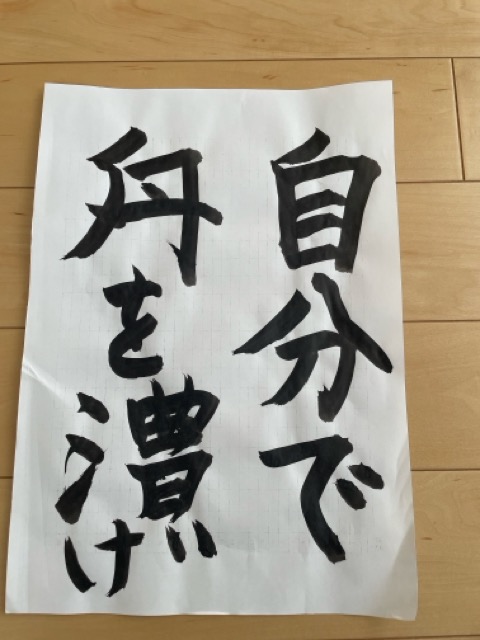 自分で
舟を漕げ